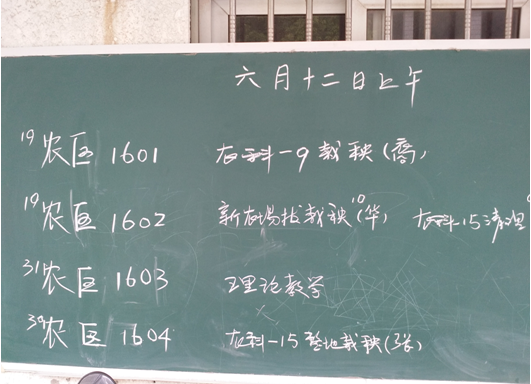 六月十二日上午
19农区1601 农科-9栽秧(裔)
19农区1602 新农场拔栽秧10(华) 农科-15清理
31农区1603 理论教学
39农区1604 农科-15整地栽秧(张)